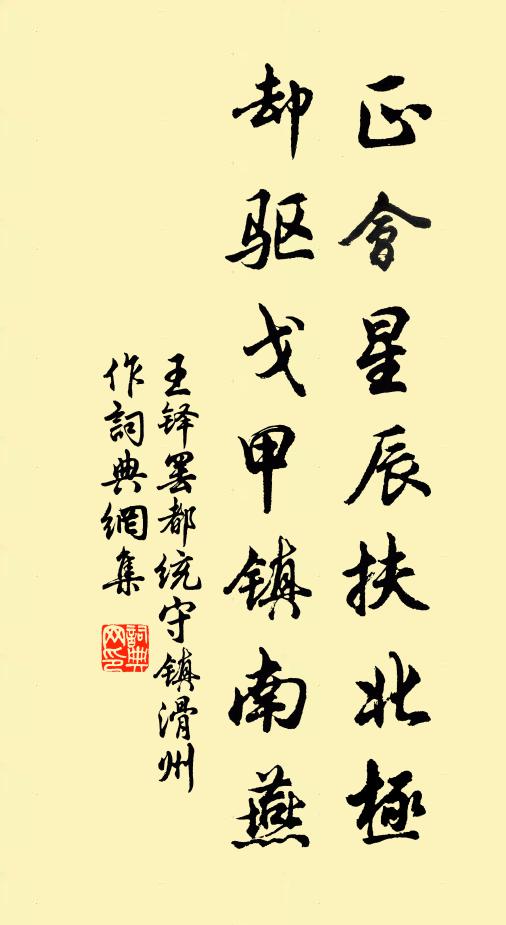 正會星辰扶北極
却驱戈甲镇南燕
王铎罢都统守镇滑州
作詞典網集
詞典網印